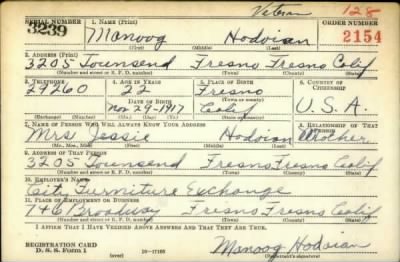 Veteran 128
SERIAL NUMBER 1. NAME (Print) ORDER NUMBER
3239 Manoog Hodoian 2154
(First) (Middle) (Last)
2. ADDRESS (Print)
3205 Townsend Fresno Fresno Calif
(Number and street or R. F. D. number) (Town) (County) (State)
3. TELEPHONE 4. AGE IN YEARS 5. PLACE OF BIRTH 6. COUNTRY OF CITIZENSHIP
29260 22 Fresno
DATE OF BIRTH (Town or county)
Nov 29-1917 Calif U.S.A.
(Exchange) (No.) (Mo.) (Day) (Yr.) (State or country)
7. NAME OF PERSON WHO WILL ALWAYS KNOW YOUR ADDRESS 8. RELATIONSHIP OF THAT PERSON
Mrs Jessie Hodoian Mother
(Mr., Mrs., Miss) (First) (Middle) (Last)
9. ADDRESS OF THAT PERSON
3205 Townsend Fresno Fresno Calif
(Number and street or R. F. D. number) (Town) (County) (State)
10. EMPLOYER'S NAME
City Furniture Exchange
11. PLACE OF EMPLOYMENT OR BUSINESS
Broadway Fresno Fresno Calif
(Number and street or R. F. D. number) (Town) (County) (State)
I AFFIRM THAT I HAVE VERIFIED ABOVE ANSWERS AND THAT THEY ARE TRUE.
REGISTRATION CARD
D. S. S. Form 1 (over) 16-17105 Manoog Hodoian
(Registrant's signature)